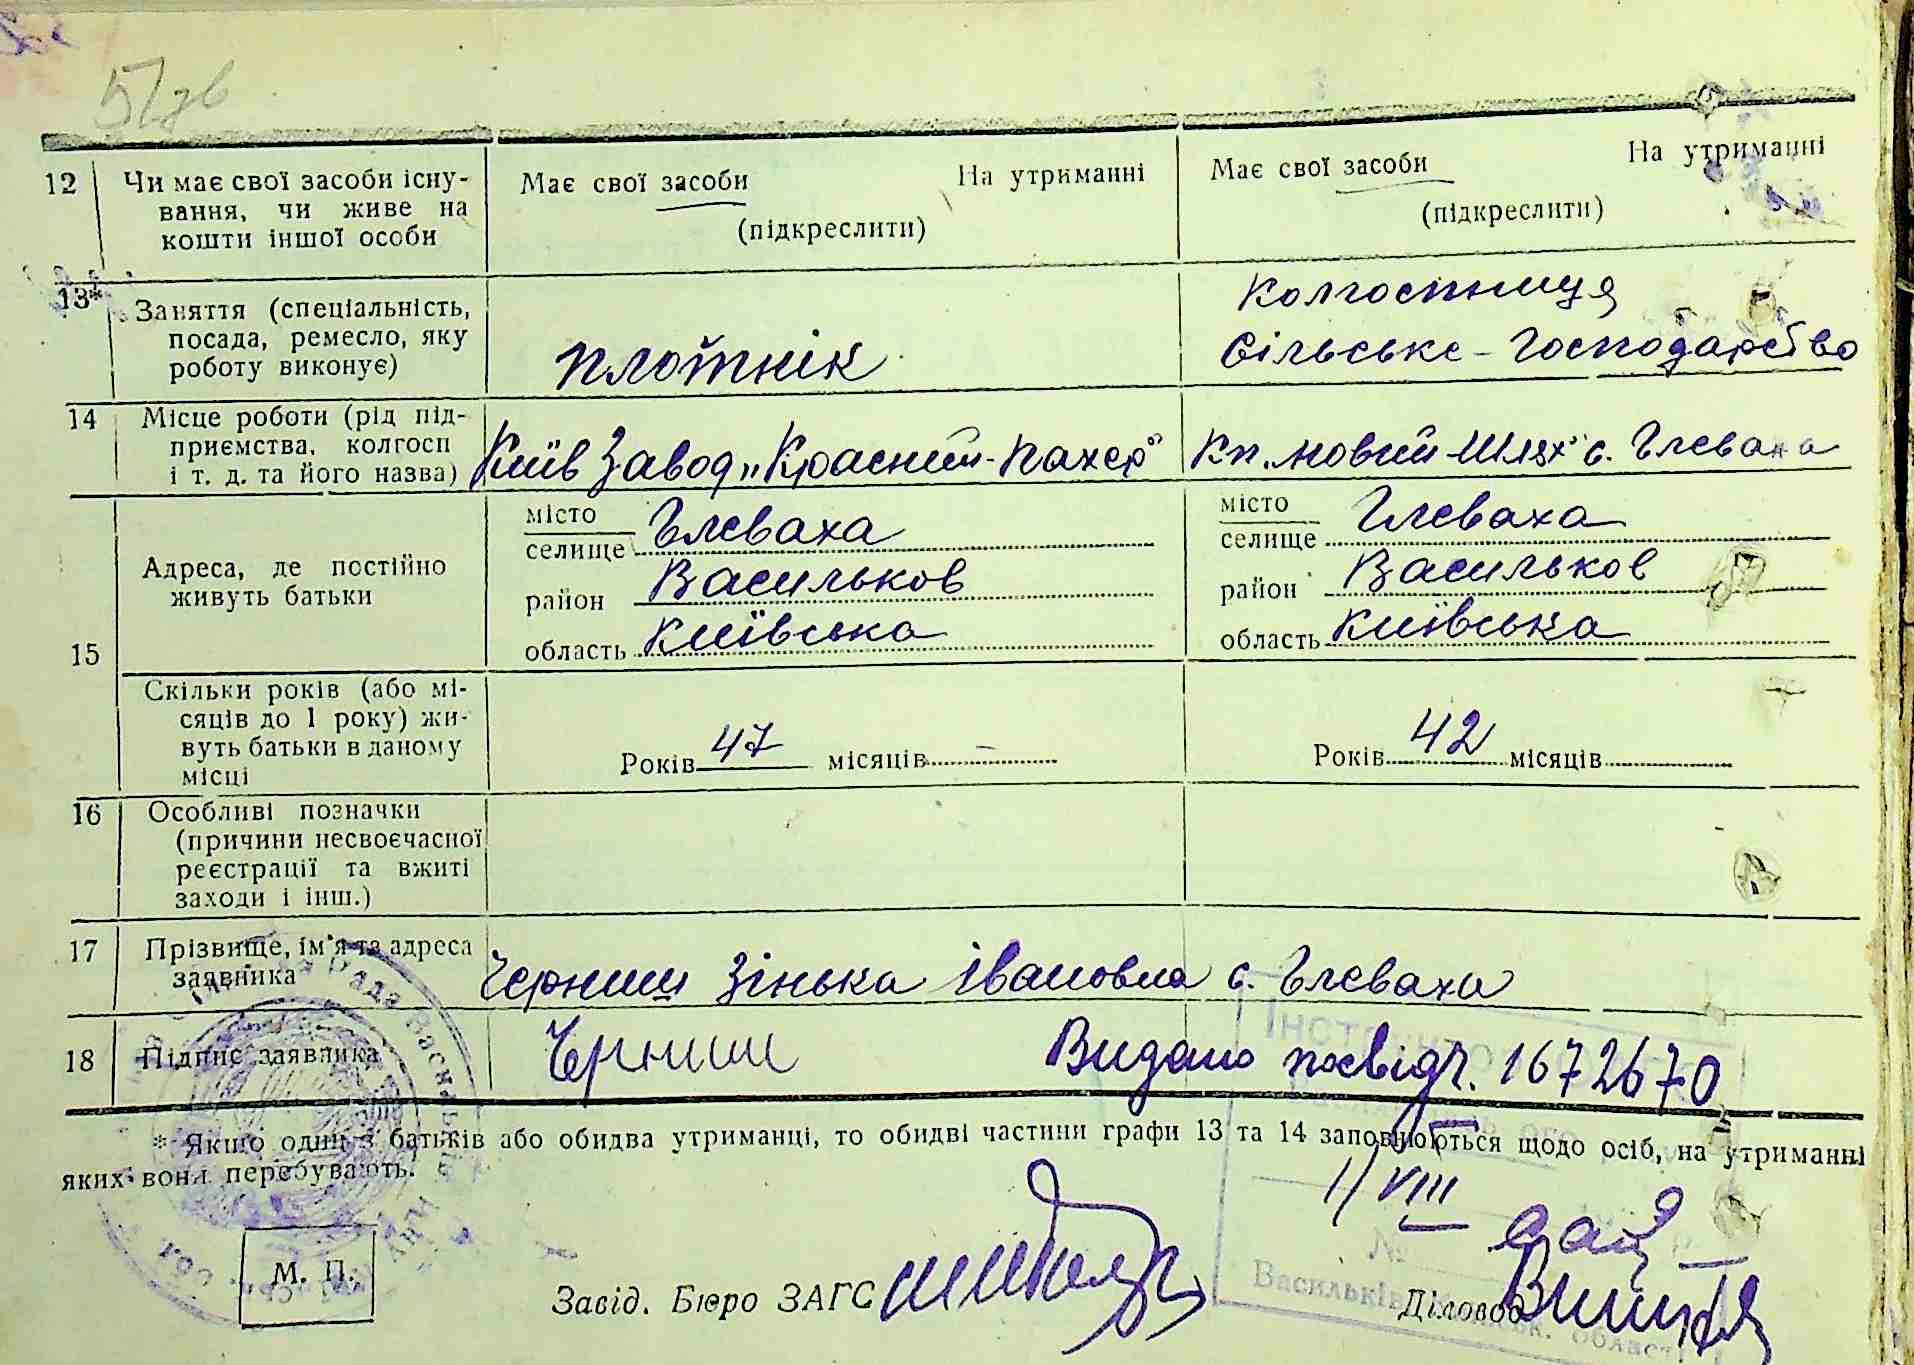 57зв
12 Чи має свої засоби існу-
вання, чи живе на
кошти іншої особи
Має свої засоби На утриманні
(підкреслити)
Має свої засоби На утриманні
(підкреслити)
13* Заняття (спеціальність,
посада, ремесло, яку
роботу виконує)
плотнік
Колгоспниця
Сільське-Господарство
14 Місце роботи (рід під-
приємства, колгосп
і т. д. та його назва)
Київ Завод „Красний-пахер"
Кп. „Новий-Шлях" с. Глеваха
15 Адреса, де постійно
живуть батьки
місто
селище Глеваха
район Васильков
область Київська
місто
селище Глеваха
район Васильков
область Київська
Скільки років (або мі-
сяців до 1 року) жи-
вуть батьки в даному
місці
Років 47 місяців –
Років 42 місяців
16 Особливі позначки
(причини несвоєчасної
реєстрації та вжиті
заходи і інш.)
17 Прізвище, ім'я та адреса
заявника
Черниш Зінька Івановна с. Глеваха
18 Підпис заявника
Черниш
Видано посвідч. 1672670
* Якщо один з батьків або обидва утриманці, то обидві частини графи 13 та 14 заповнюються щодо осіб, на утриманні
яких вони перебувають.
11/VIII
М. П.
Завід. Бюро ЗАГС
Діловод